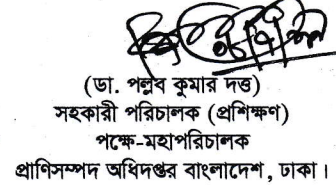 (ডা. পল্লব কুমার দত্ত)
সহকারী পরিচালক (প্রশিক্ষণ)
পক্ষে-মহাপরিচালক
প্রাণিসম্পদ অধিদপ্তর বাংলাদেশ, ঢাকা।